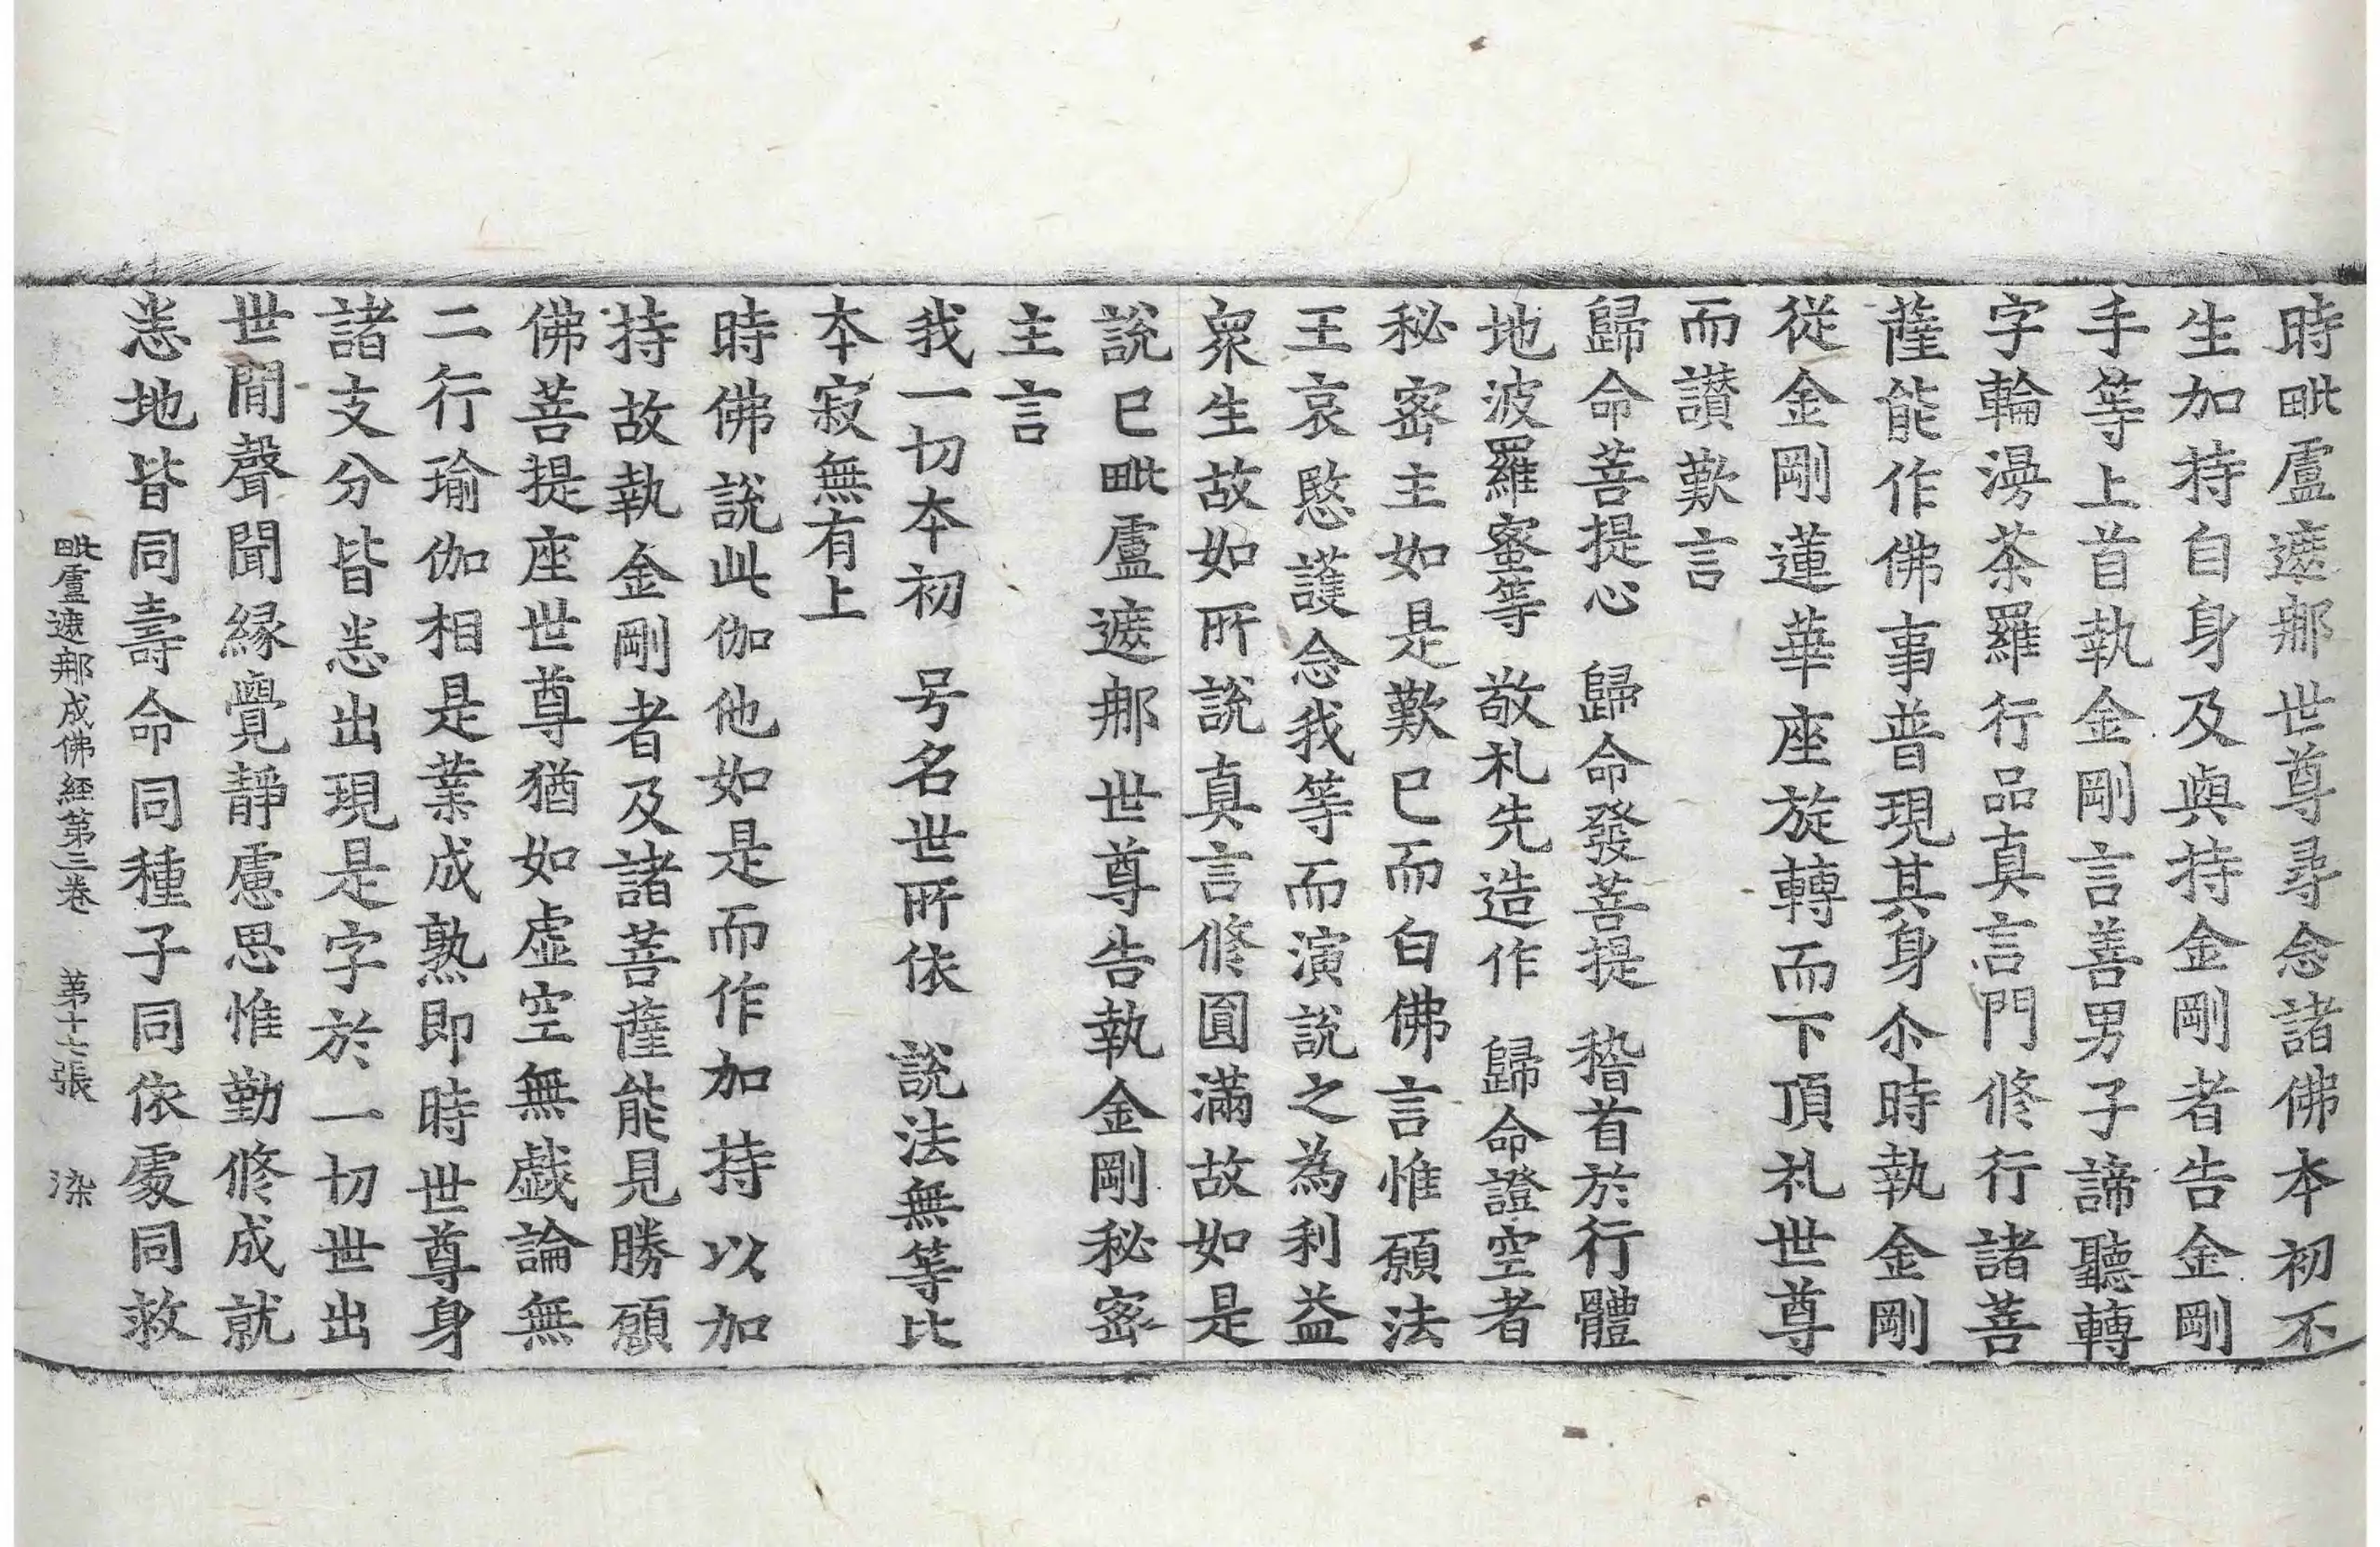 時毗盧遮那世尊尋念諸佛本初不
生加持自身及與持金剛者告金剛
手等上首執金剛言善男子諦聽轉
字輪漫茶羅行品真言門修行諸菩
薩能作佛事普現其身尒時執金剛
從金剛蓮華座旋轉而下頂礼世尊
而讃歎言
歸命菩提心　歸命發菩提　稽首於行體
地波羅蜜等　敬礼先造作　歸命證空者
秘密主如是歎已而白佛言惟願法
王哀愍護念我等而演說之為利益
衆生故如所說真言修圓滿故如是
說已毗盧遮那世尊告執金剛秘密
主言
我一切本初　号名世所依　說法無等比
本寂無有上
時佛說此伽他如是而作加持以加
持故執金剛者及諸菩薩能見勝願
佛菩提座世尊猶如虛空無戲論無
二行瑜伽相是業成熟即時世尊身
諸支分皆悉出現是字於一切世出
世間聲聞緣覺靜慮思惟勤修成就
悉地皆同壽命同種子同依處同救
毗盧遮那成佛経第三卷　第十七張　染